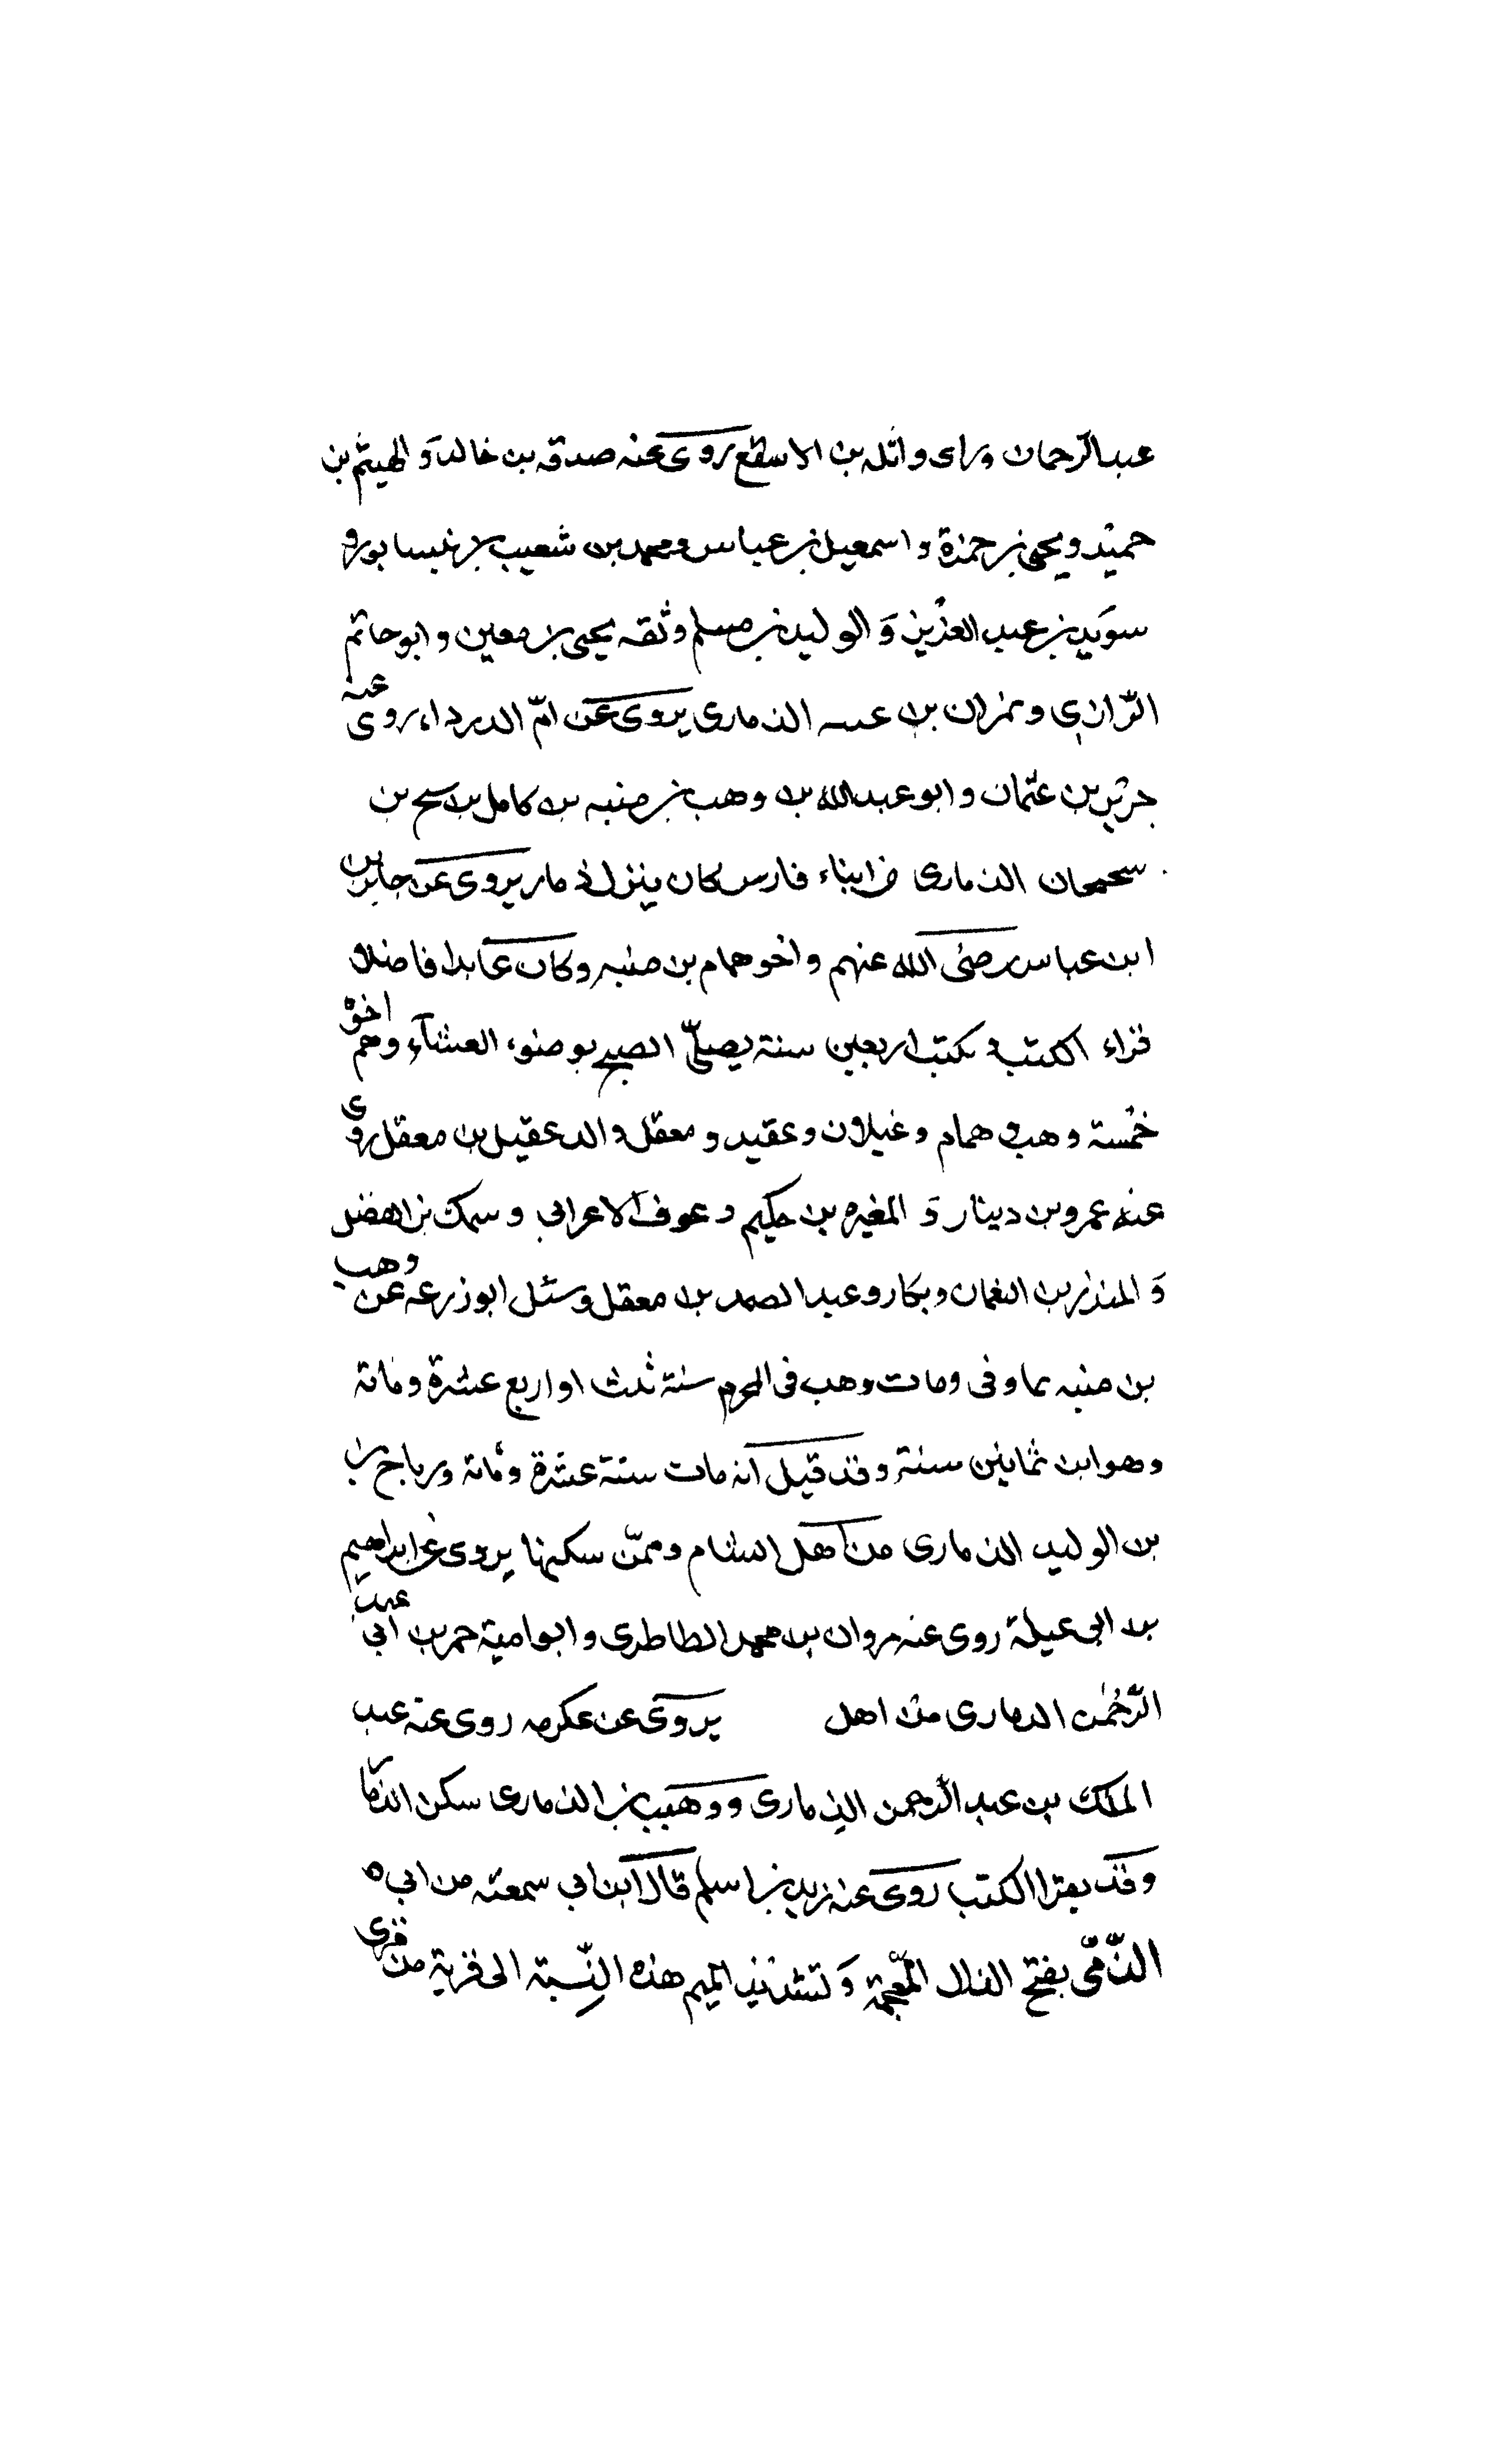 عبد الرحمان وراى واثله بن الاسقع روى عنه صدقه بن خالد و الهيثم بن
حميد ويحيى بن حمزة واسمعيل بن عياس ومحمد بن شعيب بن سابور و
سويد بن عبد العزيز و الوليد بن مسلم وثقه يحيى بن معين وابو حاتم
الرّازي ونمران بن عتبه الذمارى يروى عن امّ الدرداء روى عنه
جرير بن عثمان وابو عبد الله بن وهب بن منبه بن كامل بن سيج بن
سحسحان الذمارى من ابناء فارس كان ينزل ذمار يروى عن جابر بن
ابن عباس رضى الله عنهم واخو همام بن منبه وكان عابدا فاضلا
قراء الكتب ومكث اربعين سنة يصلّى الصبح بوضوء العشاء وهم اخوة
خمسة وهب و همام وغيلان وعقيد و معقل والد عقيل بن معقل روى
عنه عمرو بن دينار و المغيره بن حكيم وعوف الاعرابي و سمك بن الفضل
و المنذر بن النعمان وبكار وعبد الصمد بن معقل وسئل ابو زرعه عن وهب
بن منبه يماوفى ومات وهب فى المحرم سنة ثلث او اربع عشرة ومائة
وهو ابن ثمانين سنة وقد قيل انه مات سنة عشرة ومائة ورباح بن
بن الوليد الذمارى من اهل الشام وممّن سكنها يروى عن ابراهيم
بن ابى عبلة روى عنه مروان بن محمد الطاطرى وابو امية حمر بن ابي عبد
الرّحمن الذمارى من اهل يروى عن عكرمه روى عنه عبد
الملك بن عبد الرحمن الذمارى ووهيب بن الذمارى سكن الذمار
وقد يقرا الكتب روى عنه زيد بن اسلم قال ابن ابي سمعته من ابي ه
الذّمّى بفتح الذال المعجمة و تشديد الميم هذه النّسبة الى قرية من قرى